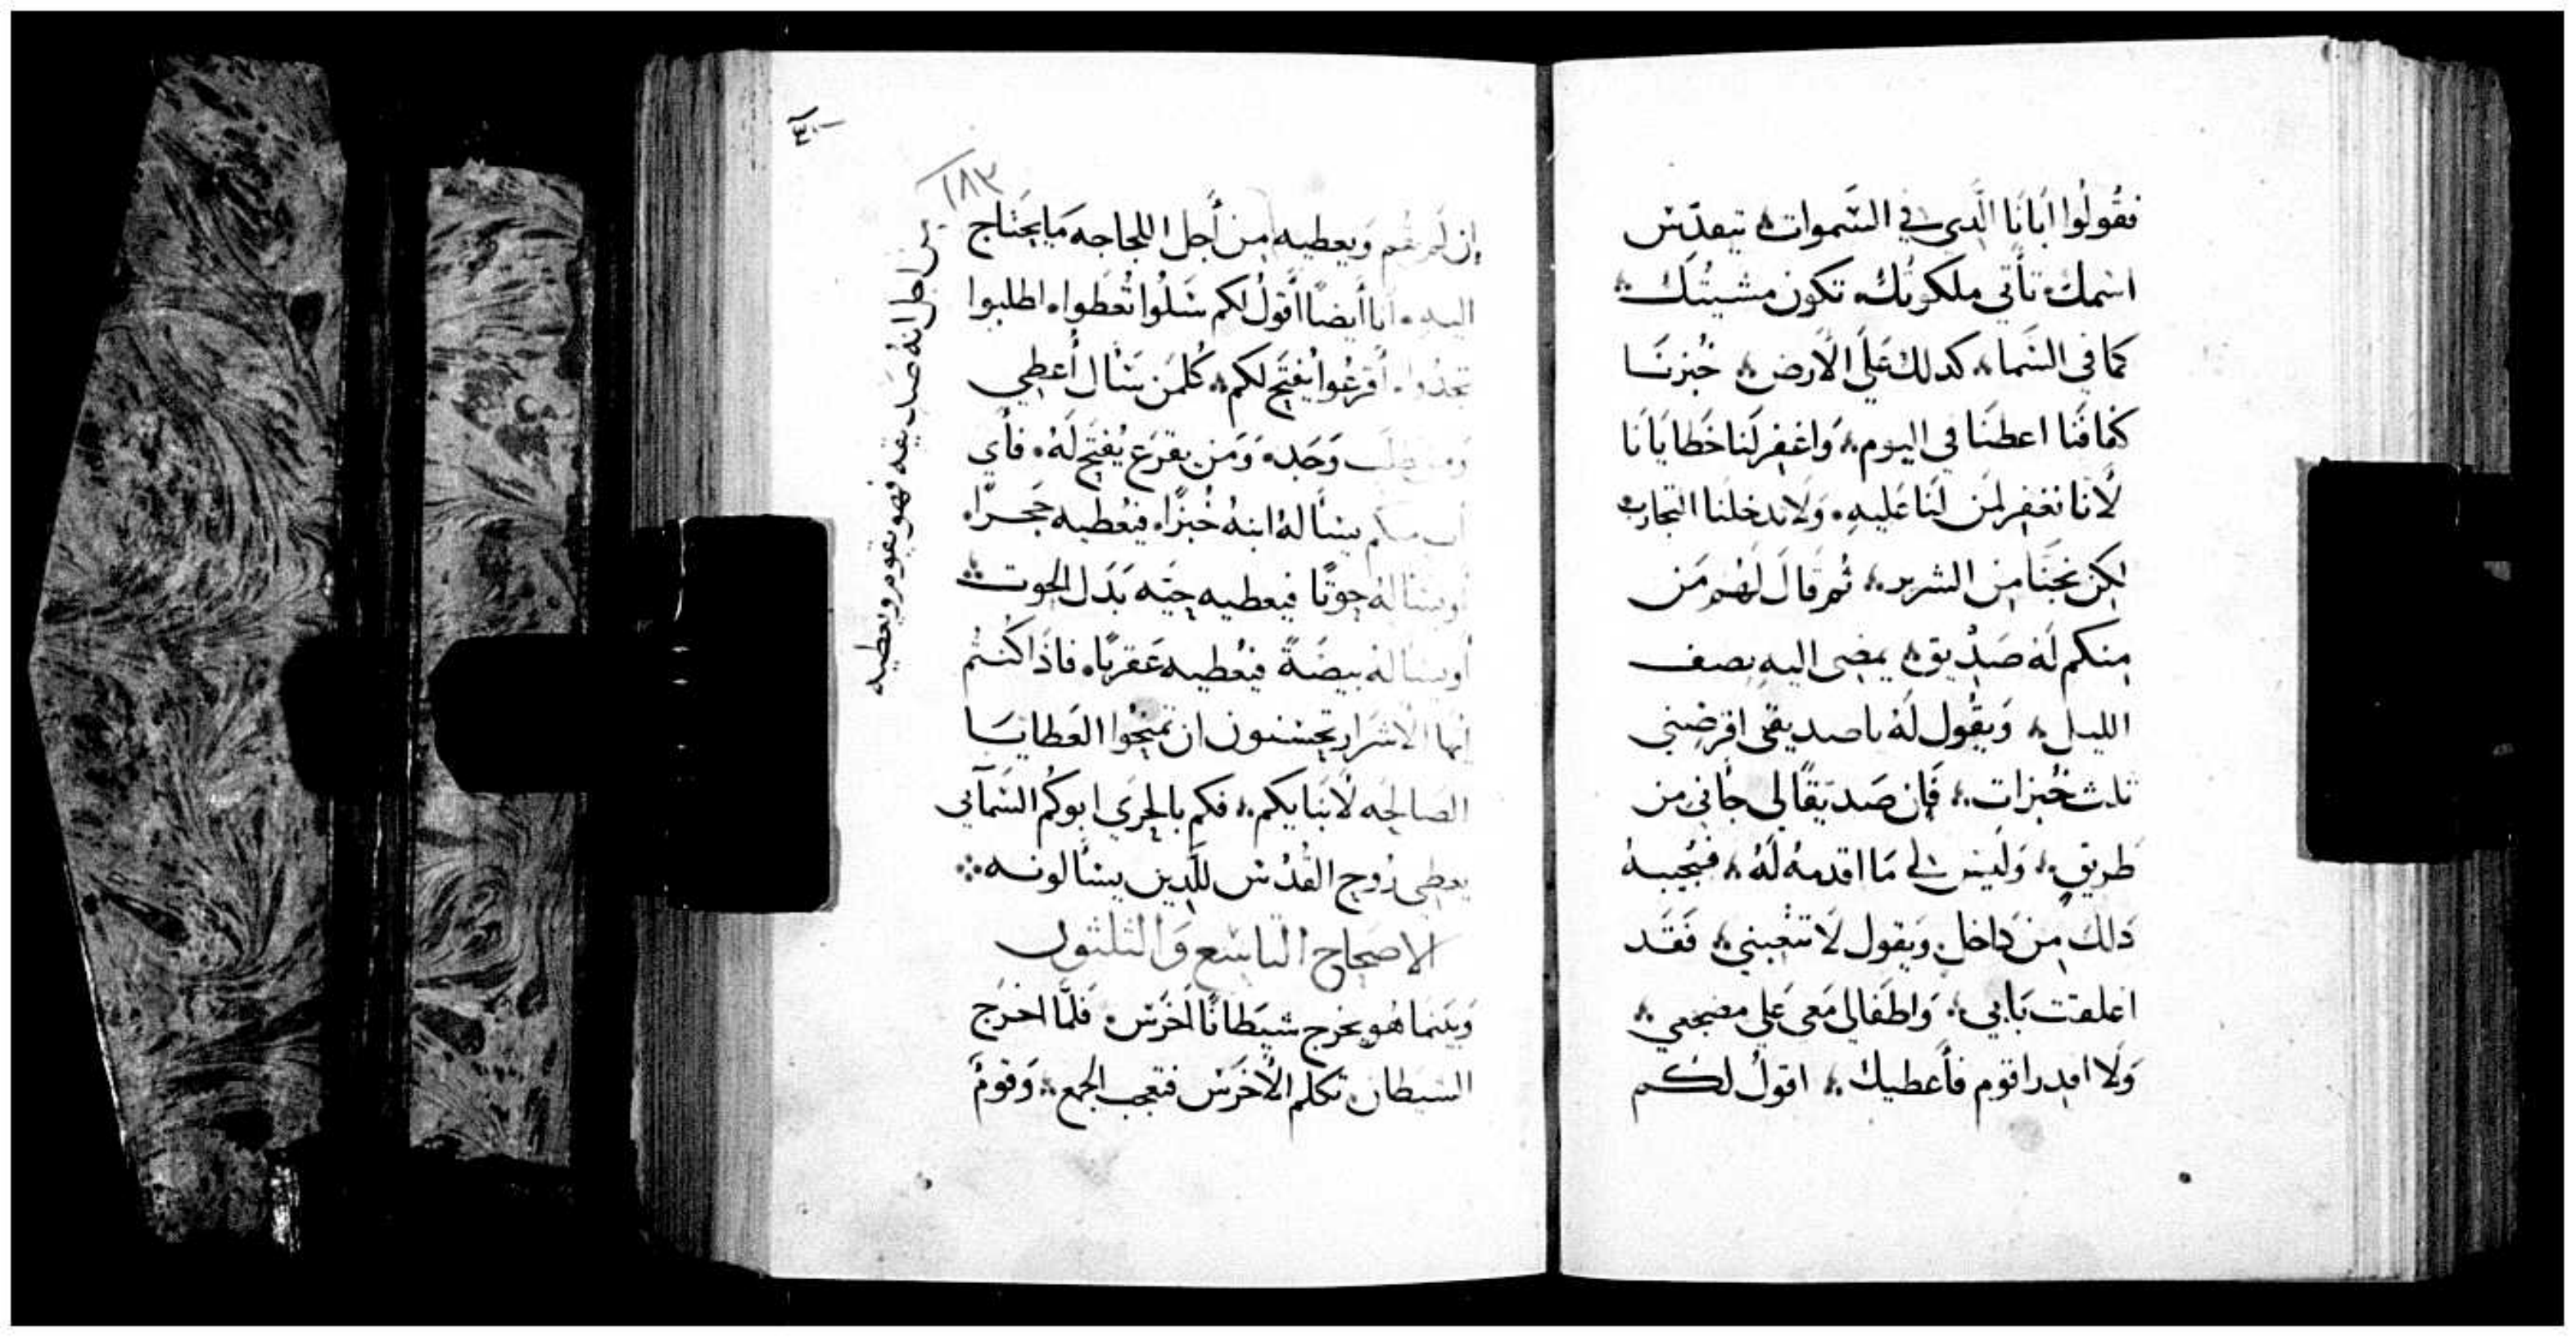 فقُولُوا ابَانَا الَّدِى فى السَّموات يتقدّس
اسْمك تأتى ملكوتك تكون مشيتك
كمَا فى السَّما كدلك عَلَى الأرض خُبزنَا
كفافَنا اعطنَا فى اليوم وَاغفِر لَنا خَطايانَا
لأنا نغفِر لمَن لنا عَليهِ وَلا تدخلنَا التجارب
لكِن نجنَا مِن الشرير ثم قالَ لهُم مَن
مِنكم لَهُ صَدِيق يمضى اليهِ نِصف
الليل وَيقُول لَهُ يا صديقى اقرضنى
تلث خُبزات فَإن صَديقًا لى جأنى من
طريق وَليسَ لى مَا اقدمهُ لَهُ فيُجيبهُ
دَلك مِن دَاخل وَيقول لَا تتعِبنى فَقَد
اغلقت بَابى وَاطفَالى مَعى عَلى مضجعى
وَلا اقدر اقوم فأعطيك اقولُ لكم
١٨٣
إن لَم يقُم وَيعطيه مِن أجل اللجاجه مَا يحتَاج
اليه أنا أيضًا أقولُ لكم سَلُوا تُعَطوا اطلبوا
تجدُوا أقرعُوا يُفتَح لكم كُلمَن يَسْأل أُعطِي
وَمن طلَب وَجَد وَمَن يقرَع يُفتَح لَهُ فأى
أب منكم يسأله ابنهُ خُبزًا فيُعطيه حَجرًا
أو يسأله حوتًا فيعطيه حيّه بَدَل الحوت
أو يسأله بيضَةً فيُعطيه عَقربًا فاذَا كُنتُم
ايها الأشرار تحسنون ان تمنحُوا العَطايا
الصَالحَه لأبنايكم فكم بالحرَى ابوكُم السَمآئى
يعطى رُوح القُدُس للَّدِين يسْألونه
الاصحاح التاسع وَالثلثون
وَبينمَا هُو يخرج شيطانًا اخرَس فلمَّا اخرَج
الشيطان تكلم الأخرَس فتعجب الجمع وَقومٌ
من اجل انهُ صَديقه فهو يقوم ويعطيه